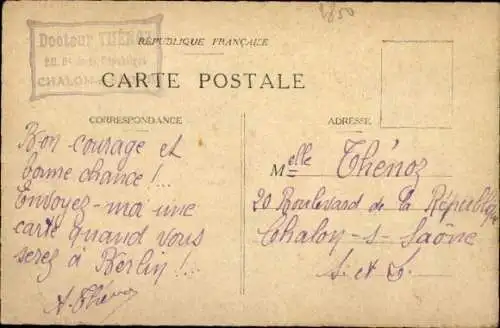 1850
Docteur THÉNOZ
20, Bd de la République
CHALON
RÉPUBLIQUE FRANÇAISE
CARTE POSTALE
CORRESPONDANCE
Bon courage et
bonne chance !..
Envoyez-moi une
carte quand vous
serez à Berlin !..
A. Thénoz
ADRESSE
Melle Thénoz
20 Boulevard de la République
Chalon-s-Saône
S. et L.